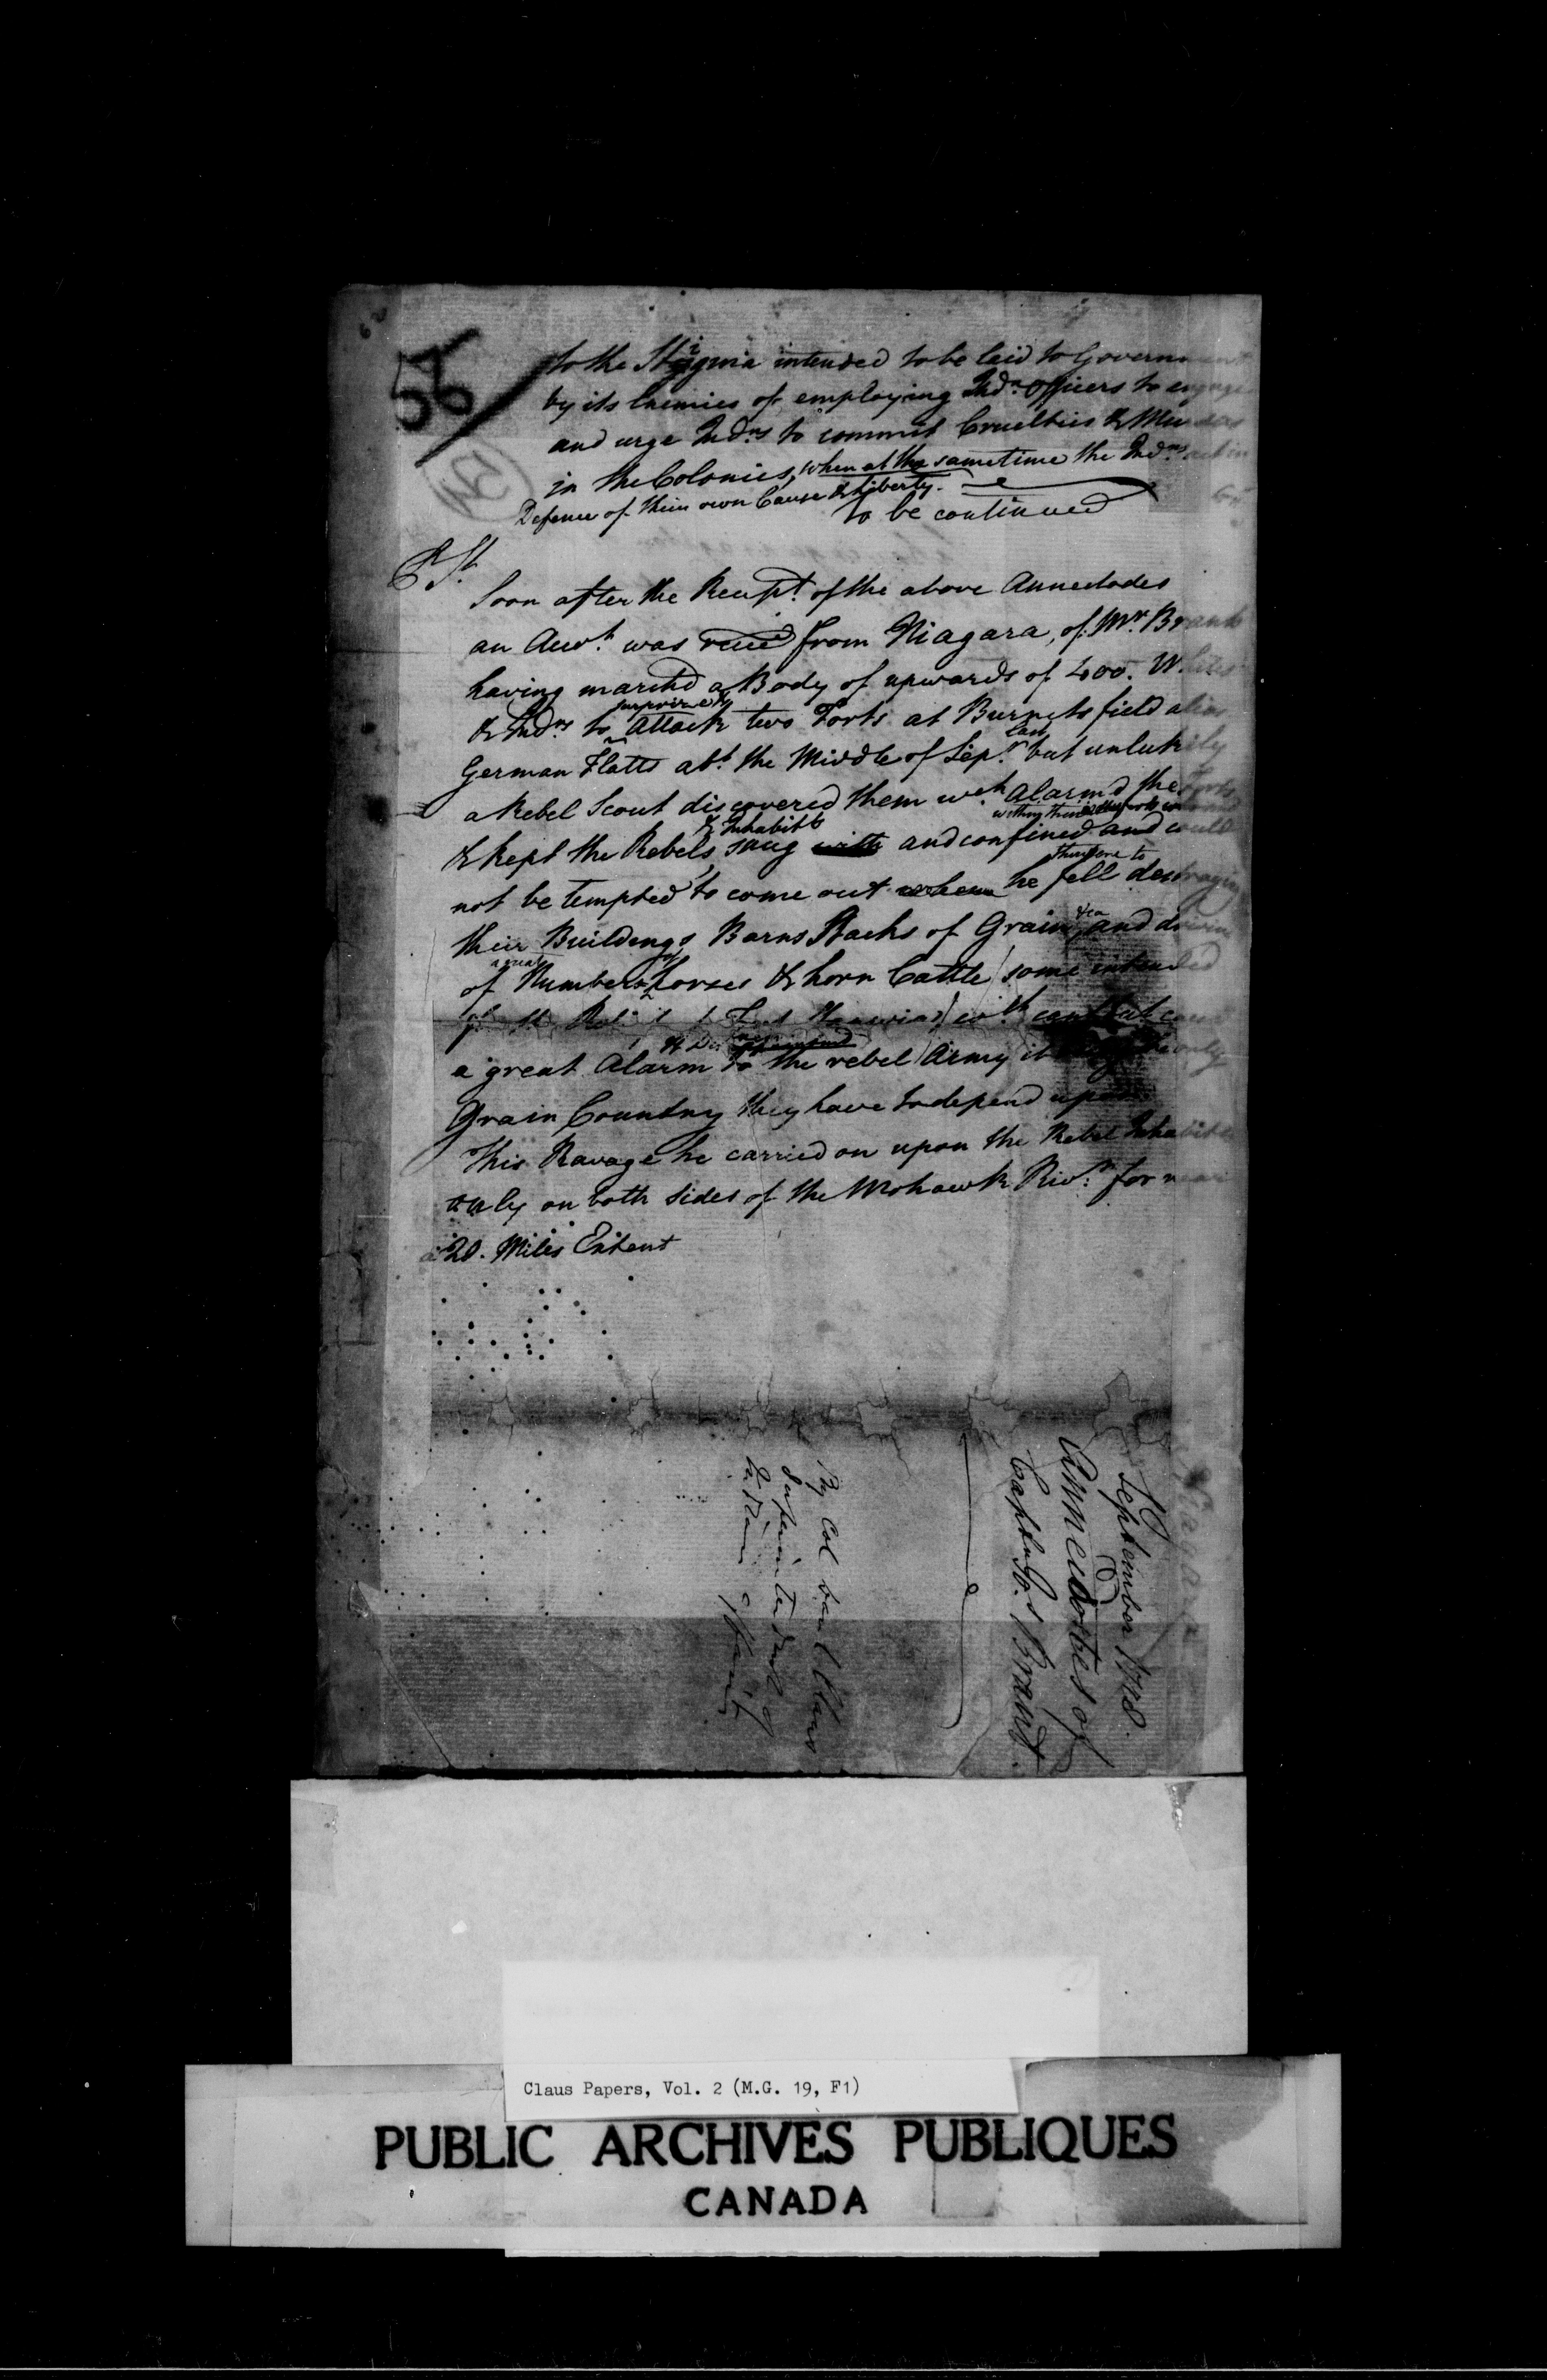 56
51
to the Stigma intended to be laid to Government
by its Enemies of employing Indn. Officers to engage
and urge Indns to commit Cruelties & Murder
in the Colonies, when at the sametime the Indns. act in
Defence of their own Cause & Liberty.
to be continued
P.S.
Soon after the Receipt. of the above Annecdodes
an Acct. was recd from Niagara, of Mr. Brant
having marchd a Body of upwards of 400. Whites
& Indns. to surprize & attack two Forts at Burnetsfield alias
German Flatts abt. the Middle of Sepr. last but unlukily
a Rebel Scout discovered them wch. Alarm'd the Forts
& kept the Rebels & Inhabitts snug with and confined within their works and could
not be tempted to come out when he fell therefore to destroying
their Buildings Barns Stacks of Grain &ca and driving
of a great Number of horses & horn Cattle / some intended
a great Alarm & to the rebel Army it only
Grain Country they have to depend upon.
This Ravage he carried on upon the Rebel Inhabitts
only on both sides of the Mohawk Rivr. for near
a 20. Miles Extent
Niagara
September 1778.
Annecdotes of
Capt. Jos. Brant.
By Col Danl Claus
Superintendant of
Indian Affairs
Claus Papers, Vol. 2 (M.G. 19, F1)
PUBLIC ARCHIVES PUBLIQUES
CANADA